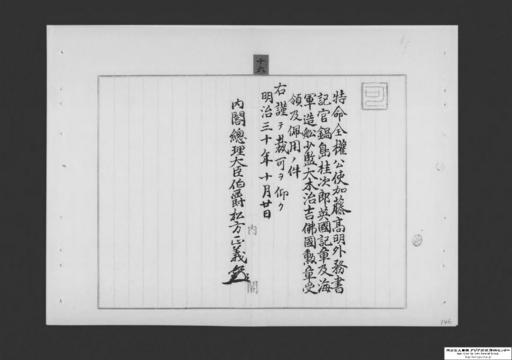 十六
特命全權公使加藤髙明外務書
記官鍋島桂次郎英國記章及海
軍造船少監大本治吉佛國勲章受
領及佩用ノ件
右謹テ裁可ヲ仰ク
明治三十年十月廿日
内閣總理大臣伯爵松方正義
内閣